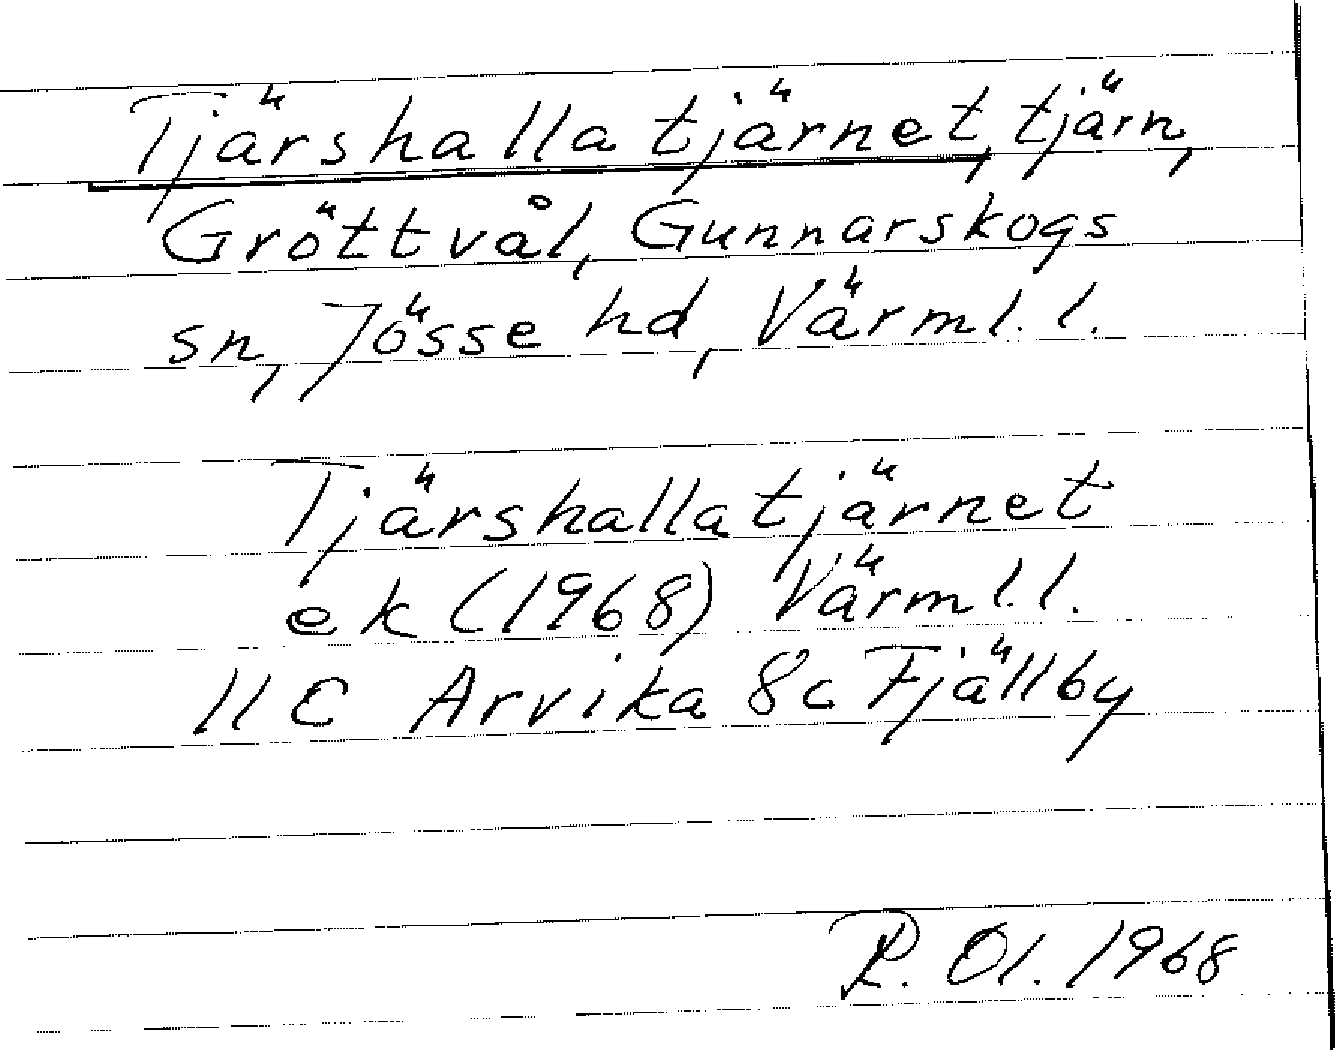 Tjärshallatjärnet, tjärn,
Gröttvål, Gunnarskogs
sn, Jösse hd, Värml. l.
Tjärshallatjärnet
ek (1968) Värml. l.
11C Arvika 8c Fjällby
Ol. 1968